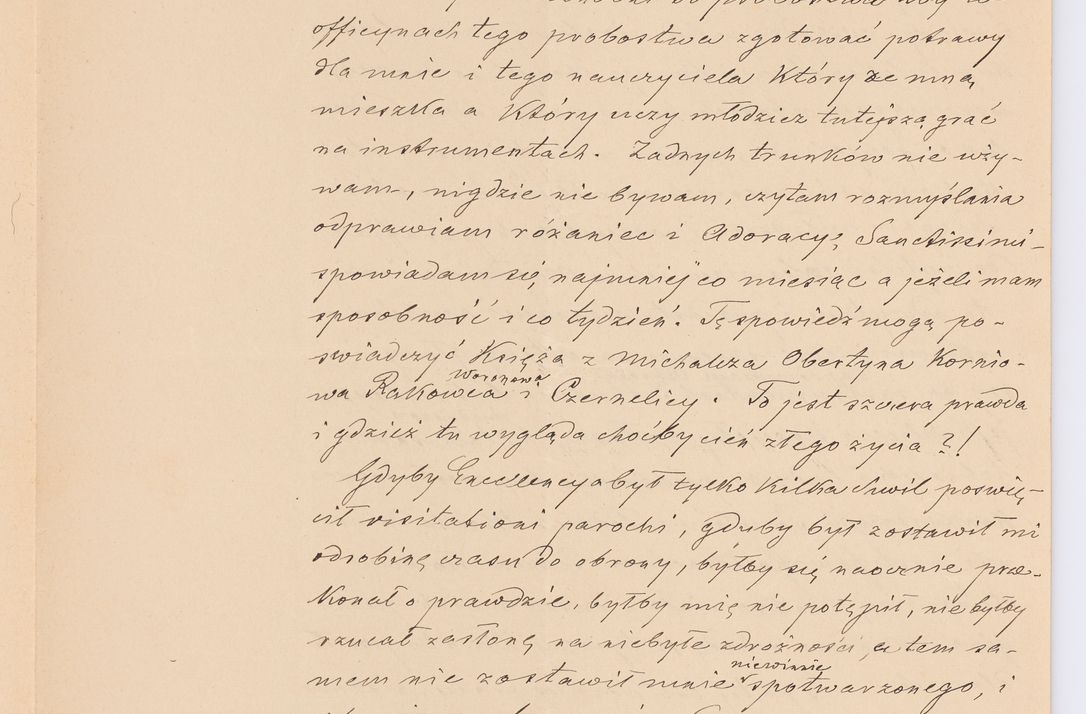 officynach tego probostwa zgotować potrawy
dla mnie i tego nauczyciela Który ze mną
mieszka a Który uczy młodzież tutejszą grać
na instrumentach. Żadnych trunków nie uży-
wam, nigdzie nie bywam, czytam rozmyślania
odprawiam różaniec i Adoracyę Sanctissimi-
spowiadam się najmniej co miesiąc a jeżeli mam
sposobność i co tydzień. Tę spowiedź mogą po-
swiadczyć Księża z Michalcza Obertyna Kornio-
wa Rakowca Woronowa i Czernelicy. To jest szczera prawda
i gdzież tu wygląda choćby cień złego życia?!
Gdyby Excellencya był tylko Kilka chwil poswię-
cił visitationi parochi, gdyby był zostawił mi
odrobinę czasu do obrony, byłby się naocznie prze-
Konał o prawdzie, byłby mię nie potępił, nie byłby
rzucał zasłonę na niebyłe zdrożności, a tem sa-
mem nie zostawił mnie niewinnie spotwarzonego, i